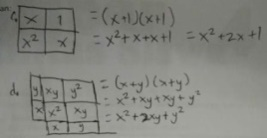 c.
x 1 = (x+1)(x+1)
x² x = x²+x+x+1 = x²+2x+1
d. y xy y² = (x+y)(x+y)
x x² xy = x²+xy+xy+y²
x y = x²+2xy+y²